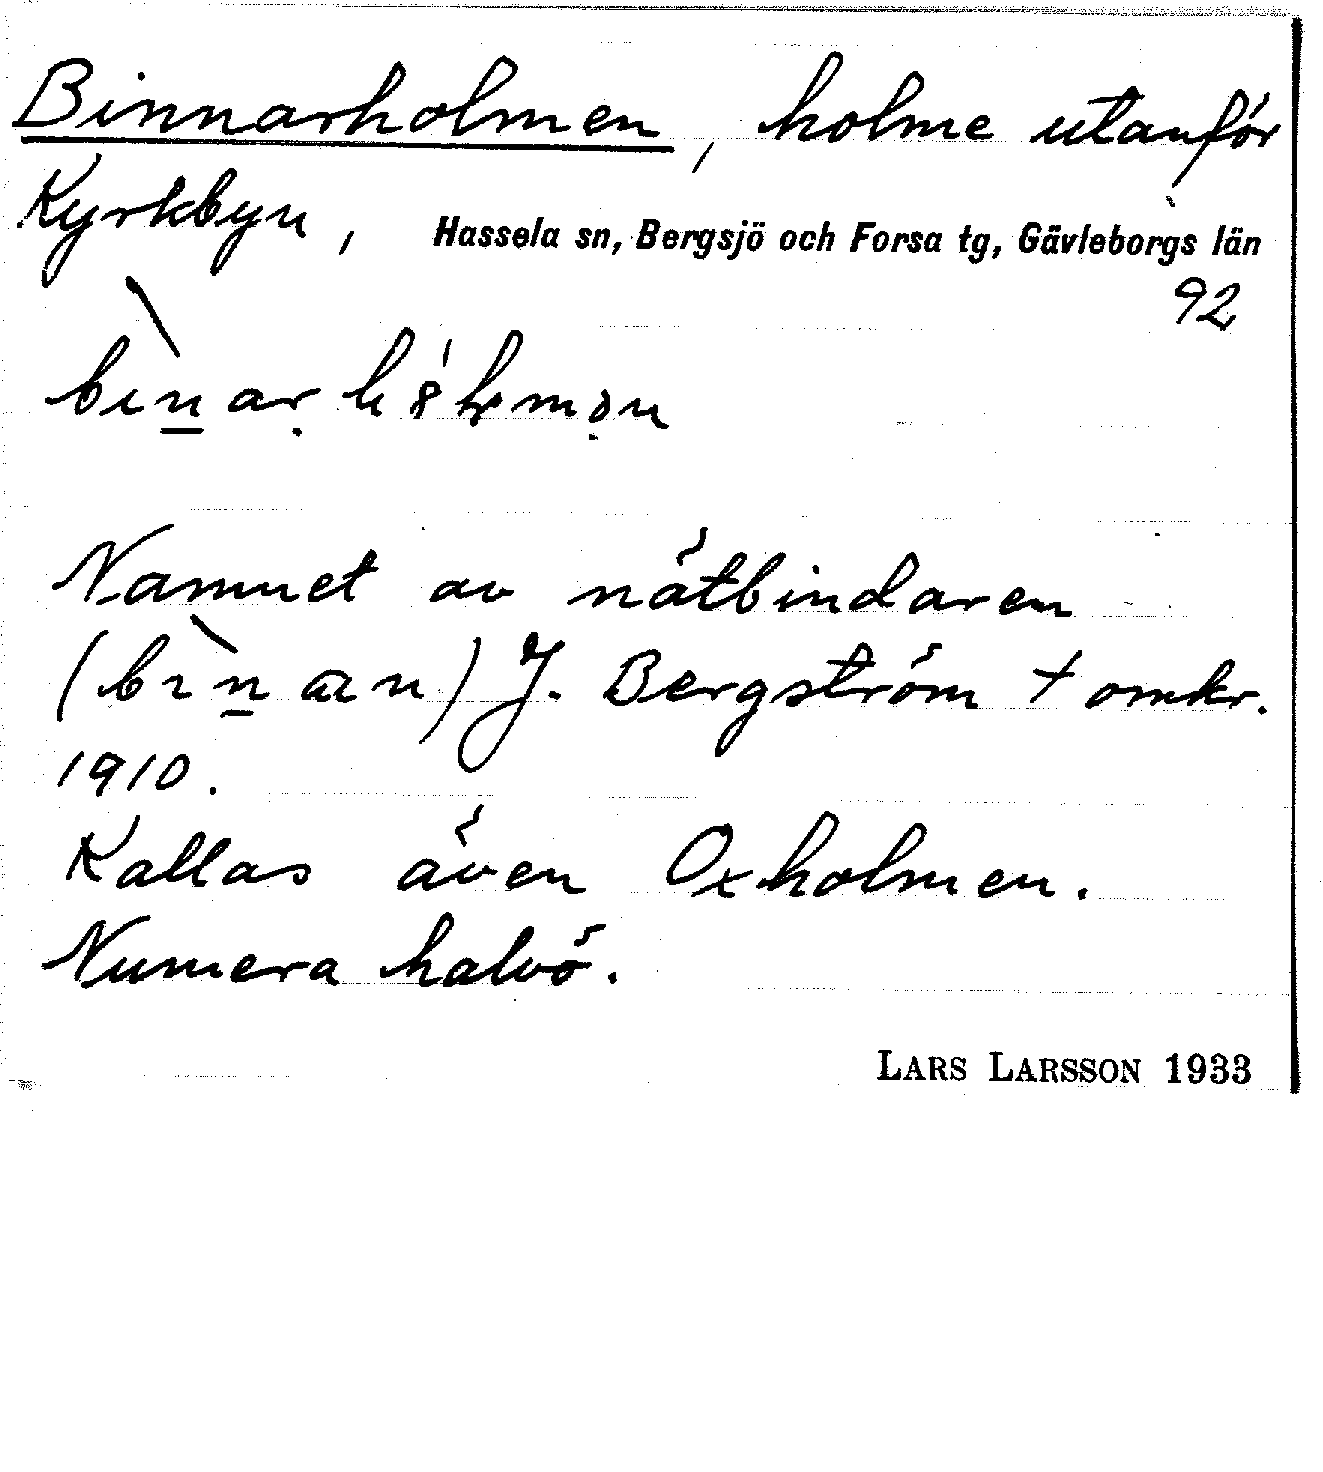 Binnarholmen, holme utanför
Kyrkbyn, Hassela sn, Bergsjö och Forsa tg, Gävleborgs län
92
Namnet av nätbindaren
J. Bergström † omkr.
1910.
Kallas även Oxholmen.
Numera halvö.
LARS LARSSON 1933